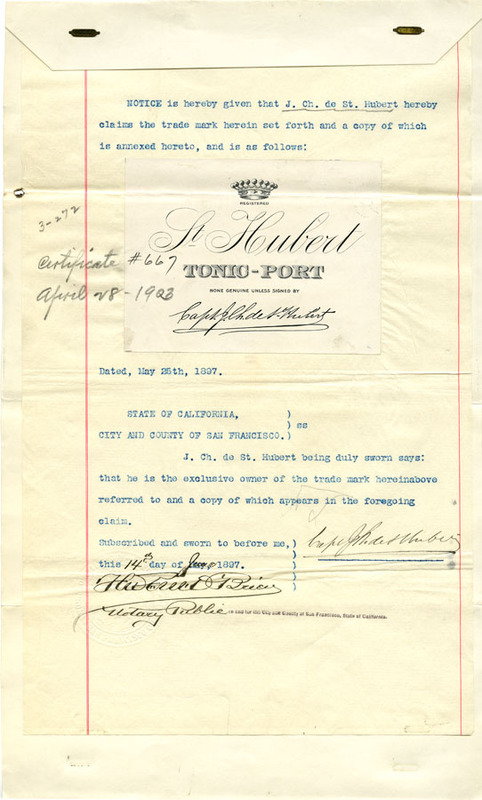 NOTICE is hereby given that J. Ch. de St. Hubert hereby
claims the trade mark herein set forth and a copy of which
is annexed hereto, and is as follows:
REGISTERED
St Hubert
TONIC-PORT
NONE GENUINE UNLESS SIGNED BY
Capt J Ch de St Hubert
3-272
Certificate #667
April 28-1903
Dated, May 25th, 1897.
STATE OF CALIFORNIA, )
) ss
CITY AND COUNTY OF SAN FRANCISCO. )
J. Ch. de St. Hubert being duly sworn says:
that he is the exclusive owner of the trade mark hereinabove
referred to and a copy of which appears in the foregoing
claim.
Subscribed and sworn to before me, ) Capt J Ch de St Hubert
this 14th day of June 1897. )
Notary Public in and for the City and County of San Francisco, State of California.